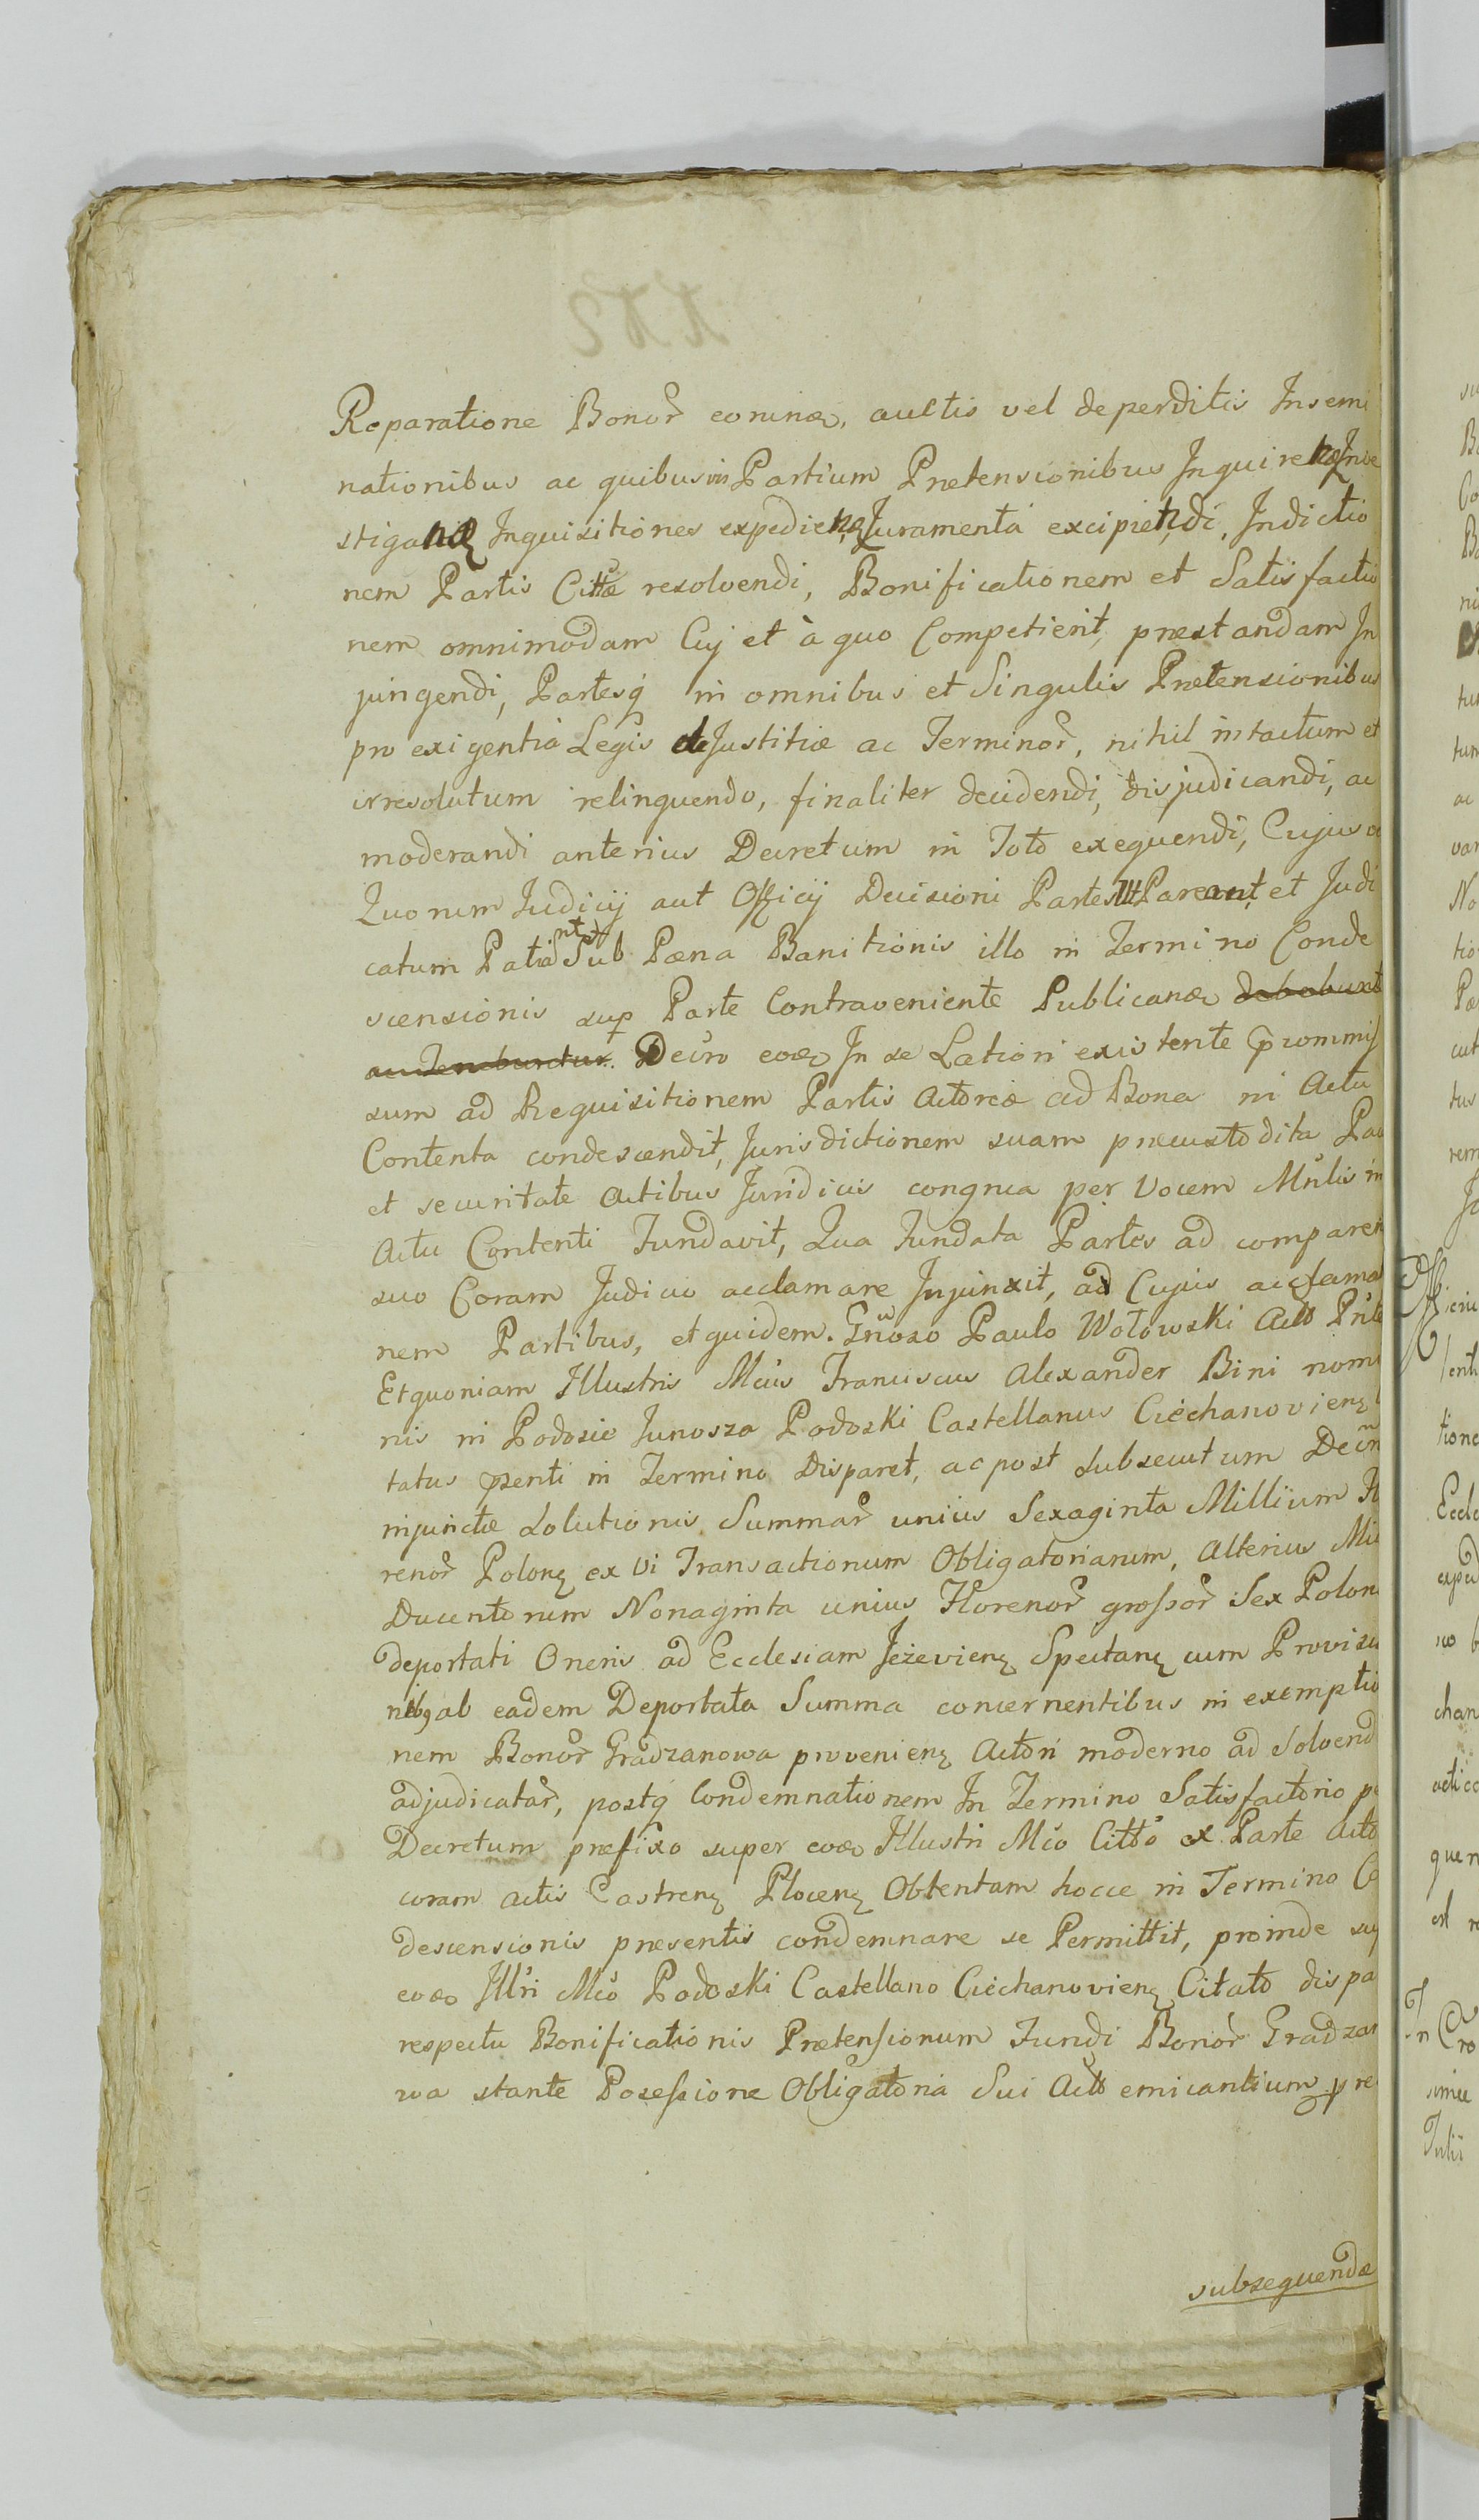 Reparatione Bonor eorund, auctis vel deperditis Insemi
nationibus ac quibusvis Partium Prætensionibus Inquirend Inve
stigand Inquisitiones expediend Juramenta excipiendi, Indictio
nem Partis Cittæ resolvendi, Bonificationem et Satisfactio
nem omnimodam Cuj et à quo Competierit, præstandam In
jungendi, Partesq in omnibus et Singulis Prætensionibus
pro exigentia Legis et Justitiæ ac Terminor, nihil intactum et
irresolutum relinquendo, finaliter decidendi, disjudicandi, ac
moderandi anterius Decretum in Toto exequendi, Cujus a
Quorum Judicij aut Officij Decisioni Partes Ut Pareant, et Judi
catum Patiantr Sub Pæna Banitionis illo in Termino Conde
scensionis sup Parte Contraveniente Publicand debebunt
ac tenebuntur. Decro eod In se Lationi existente prommis
sum ad Requisitionem Partis Actoreæ ad Bona in Actu
Contenta condescendit, Jurisdictionem suam præcustodita Pac
et securitate Actibus Juridicis congrua per Vocem Mnlis in
Actu Contenti Fundavit, Qua Fundata Partes ad comparen
suo Coram Judicio acclamare Injunxit, ad Cujus acclama
nem Partibus, et quidem. Gnoso Paulo Wołowski Acto Prnte
Et quoniam Illustris Mcus Franciscus Alexander Bini nomi
nis in Podosie Junosza Podoski Castellanus Ciechanovien
tatus prsenti in Termino Disparet, ac post Subsecutum Decrm
injunctæ Solutionis Summar unius Sexaginta Millium Fl
renor Polon ex Vi Transactionum Obligatoriarum, Alterius Mil
Ducentorum Nonaginta unius Florenor grossor Sex Polon
deportati Oneris ad Ecclesiam Jeżevien Spectan cum Provisi
nibq ab eadem Deportata Summa concernentibus in exemptio
nem Bonor Gradzanowa provenien Actori moderno ad Solvend
adjudicatar, postq Condemnationem In Termino Satisfactorio p
Decretum præfixo super eod Illustri Mco Citto ex Parte Acto
coram Actis Castren Plocen Obtentam hocce in Termino Co
descensionis præsentis condemnare se Permittit, proinde sup
eod Illri Mco Podoski Castellano Ciechanovien Citato dispa
respectu Bonificationis Prætensionum Fundi Bonor Gradzan
wa stante Possessione Obligatoria Sui Acto emicantium pre
subsequendæ